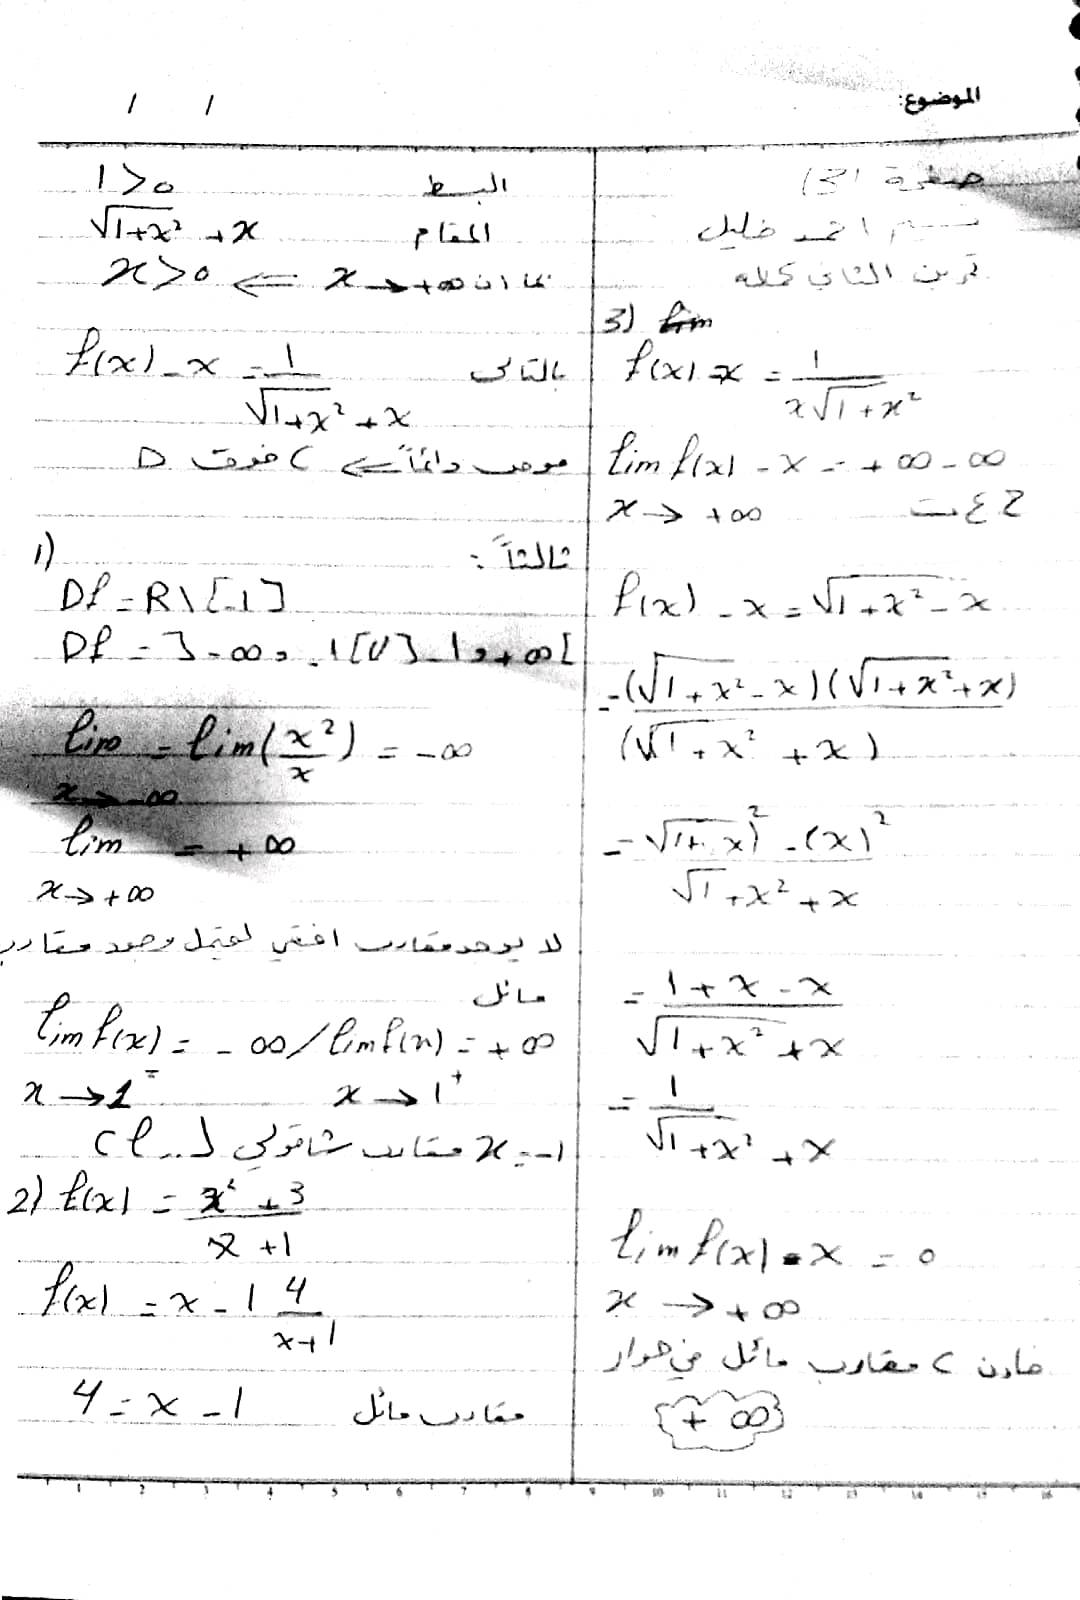 الموضوع:
/ /
صفحة (13
قسم احمد خليل
تمرين الثاني تكملة
3) lim
f(x) - x = 1 / x√1+x²
lim f(x) - x = +∞ - ∞
x → +∞ ح ع ت
f(x) - x = √1+x² - x
= (√1+x² - x)(√1+x² + x) / (√1+x² + x)
= √1+x)² - (x)² / √1+x² + x
= 1 + x - x / √1+x² + x
= 1 / √1+x² + x
lim f(x) - x = 0
x → +∞
مقارب مائل في جوار
+ ∞
البسط 1>0
المقام √1+x² + x
بما ان x → +∞ ⇐ x>0
بالتالي f(x) - x = 1 / √1+x² + x
موجب دائماً ⇐ C فوق D
ثالثاً:
1)
Df = R\[-1]
Df = ]-∞, -1[U]-1, +∞[
lim = lim(x²/x) = -∞
x → -∞
lim = +∞
x → +∞
لا يوجد مقارب افقي يحتمل وجود مقارب
مائل
lim f(x) = -∞ / lim f(x) = +∞
x → 1⁻ x → 1⁺
x = -1 مقارب شاقولي
2) f(x) = x² + 3 / x + 1
f(x) = x - 1 4 / x+1
4 = x - 1 مقارب مائل
1 2 3 4 5 6 7 8 9 10 11 12 13 14 15 16